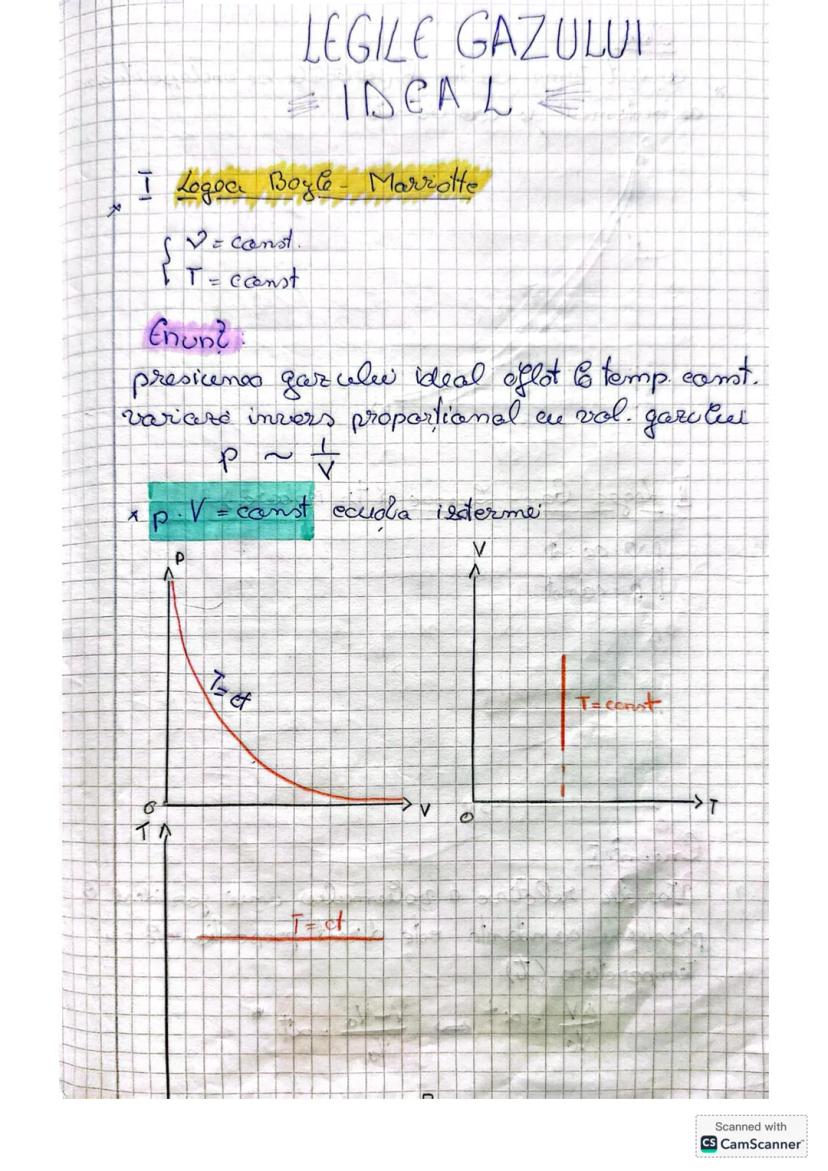 LEGILE GAZULUI
IDEAL
I Legea Boyle - Marriotte
ν = const.
T = const
Enunț:
presiunea gazului ideal aflat la temp. const.
variază invers proporțional cu vol. gazului
p ~ 1/V
* p · V = const ecuația izotermei
P
T = ct
O
V
V
T = const.
O
T
T
T = ct
Scanned with
CS CamScanner